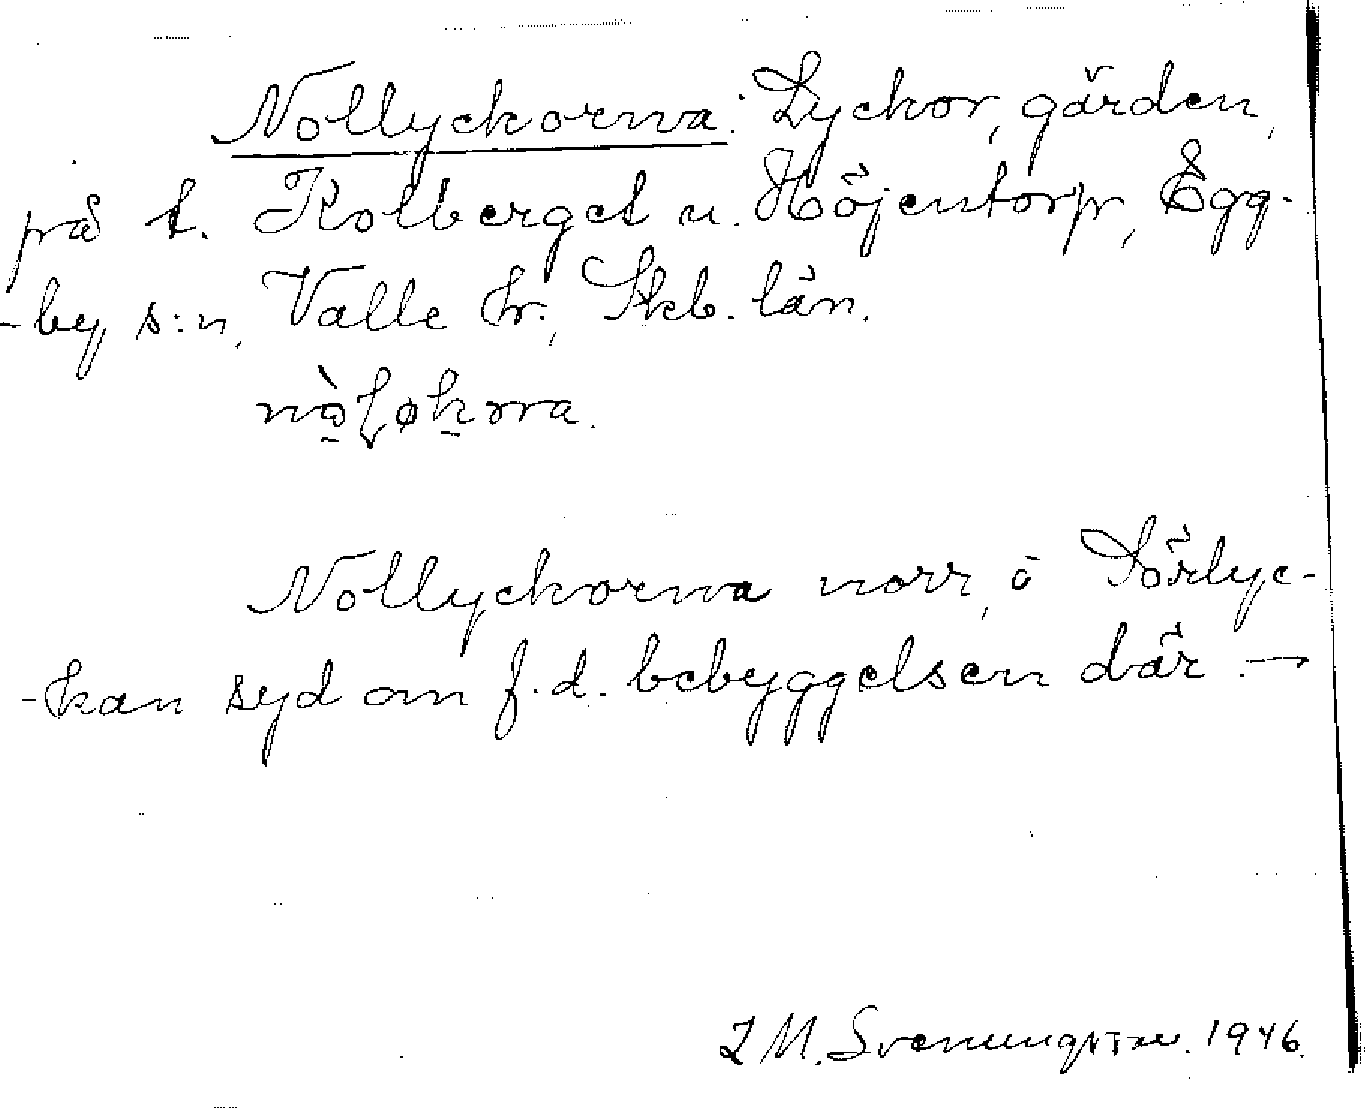 Nollyckorna: Lyckor, gärden,
på t. Kolberget u. Höjentorp, Egg-
-by s:n, Valle hr., Skb. län.
Nollyckorna norr, ö Sörlyc-
-kan syd om f.d. bebyggelsen där. →
M. Svenungsson. 1946.